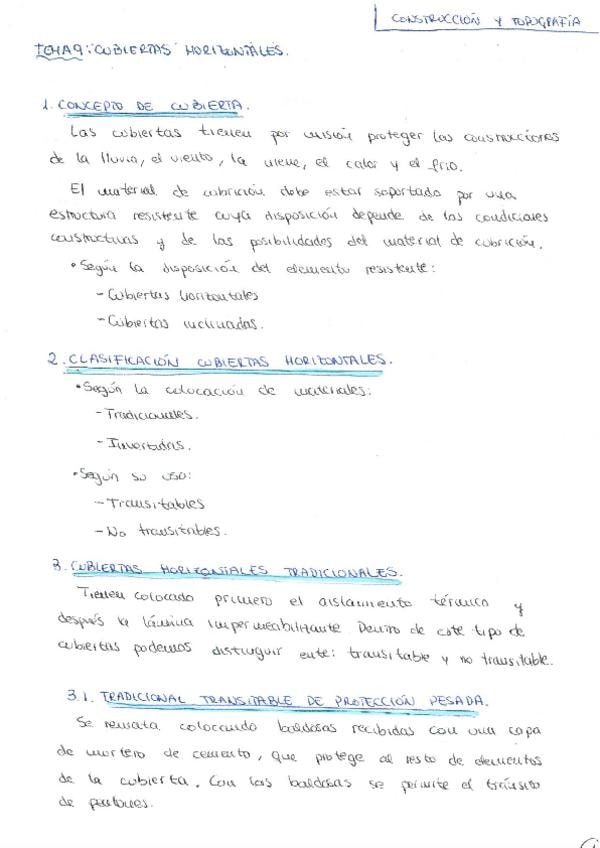 CONSTRUCCIÓN Y TOPOGRAFÍA
TEMA 9: CUBIERTAS HORIZONTALES.
1. CONCEPTO DE CUBIERTA.
Las cubiertas tienen por misión proteger las construcciones
de la lluvia, el viento, la nieve, el calor y el frío.
El material de cubrición debe estar soportado por una
estructura resistente cuya disposición depende de las condiciones
constructivas y de las posibilidades del material de cubrición.
• Según la disposición del elemento resistente:
- Cubiertas horizontales
- Cubiertas inclinadas.
2. CLASIFICACIÓN CUBIERTAS HORIZONTALES.
• Según la colocación de materiales:
- Tradicionales.
- Invertidas.
• Según su uso:
- Transitables
- No transitables.
3. CUBIERTAS HORIZONTALES TRADICIONALES.
Tienen colocado primero el aislamiento térmico y
después la lámina impermeabilizante. Dentro de este tipo de
cubiertas podemos distinguir entre: transitable y no transitable.
3.1. TRADICIONAL TRANSITABLE DE PROTECCIÓN PESADA.
Se remata colocando baldosas recibidas con una capa
de mortero de cemento, que protege al resto de elementos
de la cubierta. Con las baldosas se permite el tránsito
de peatones.